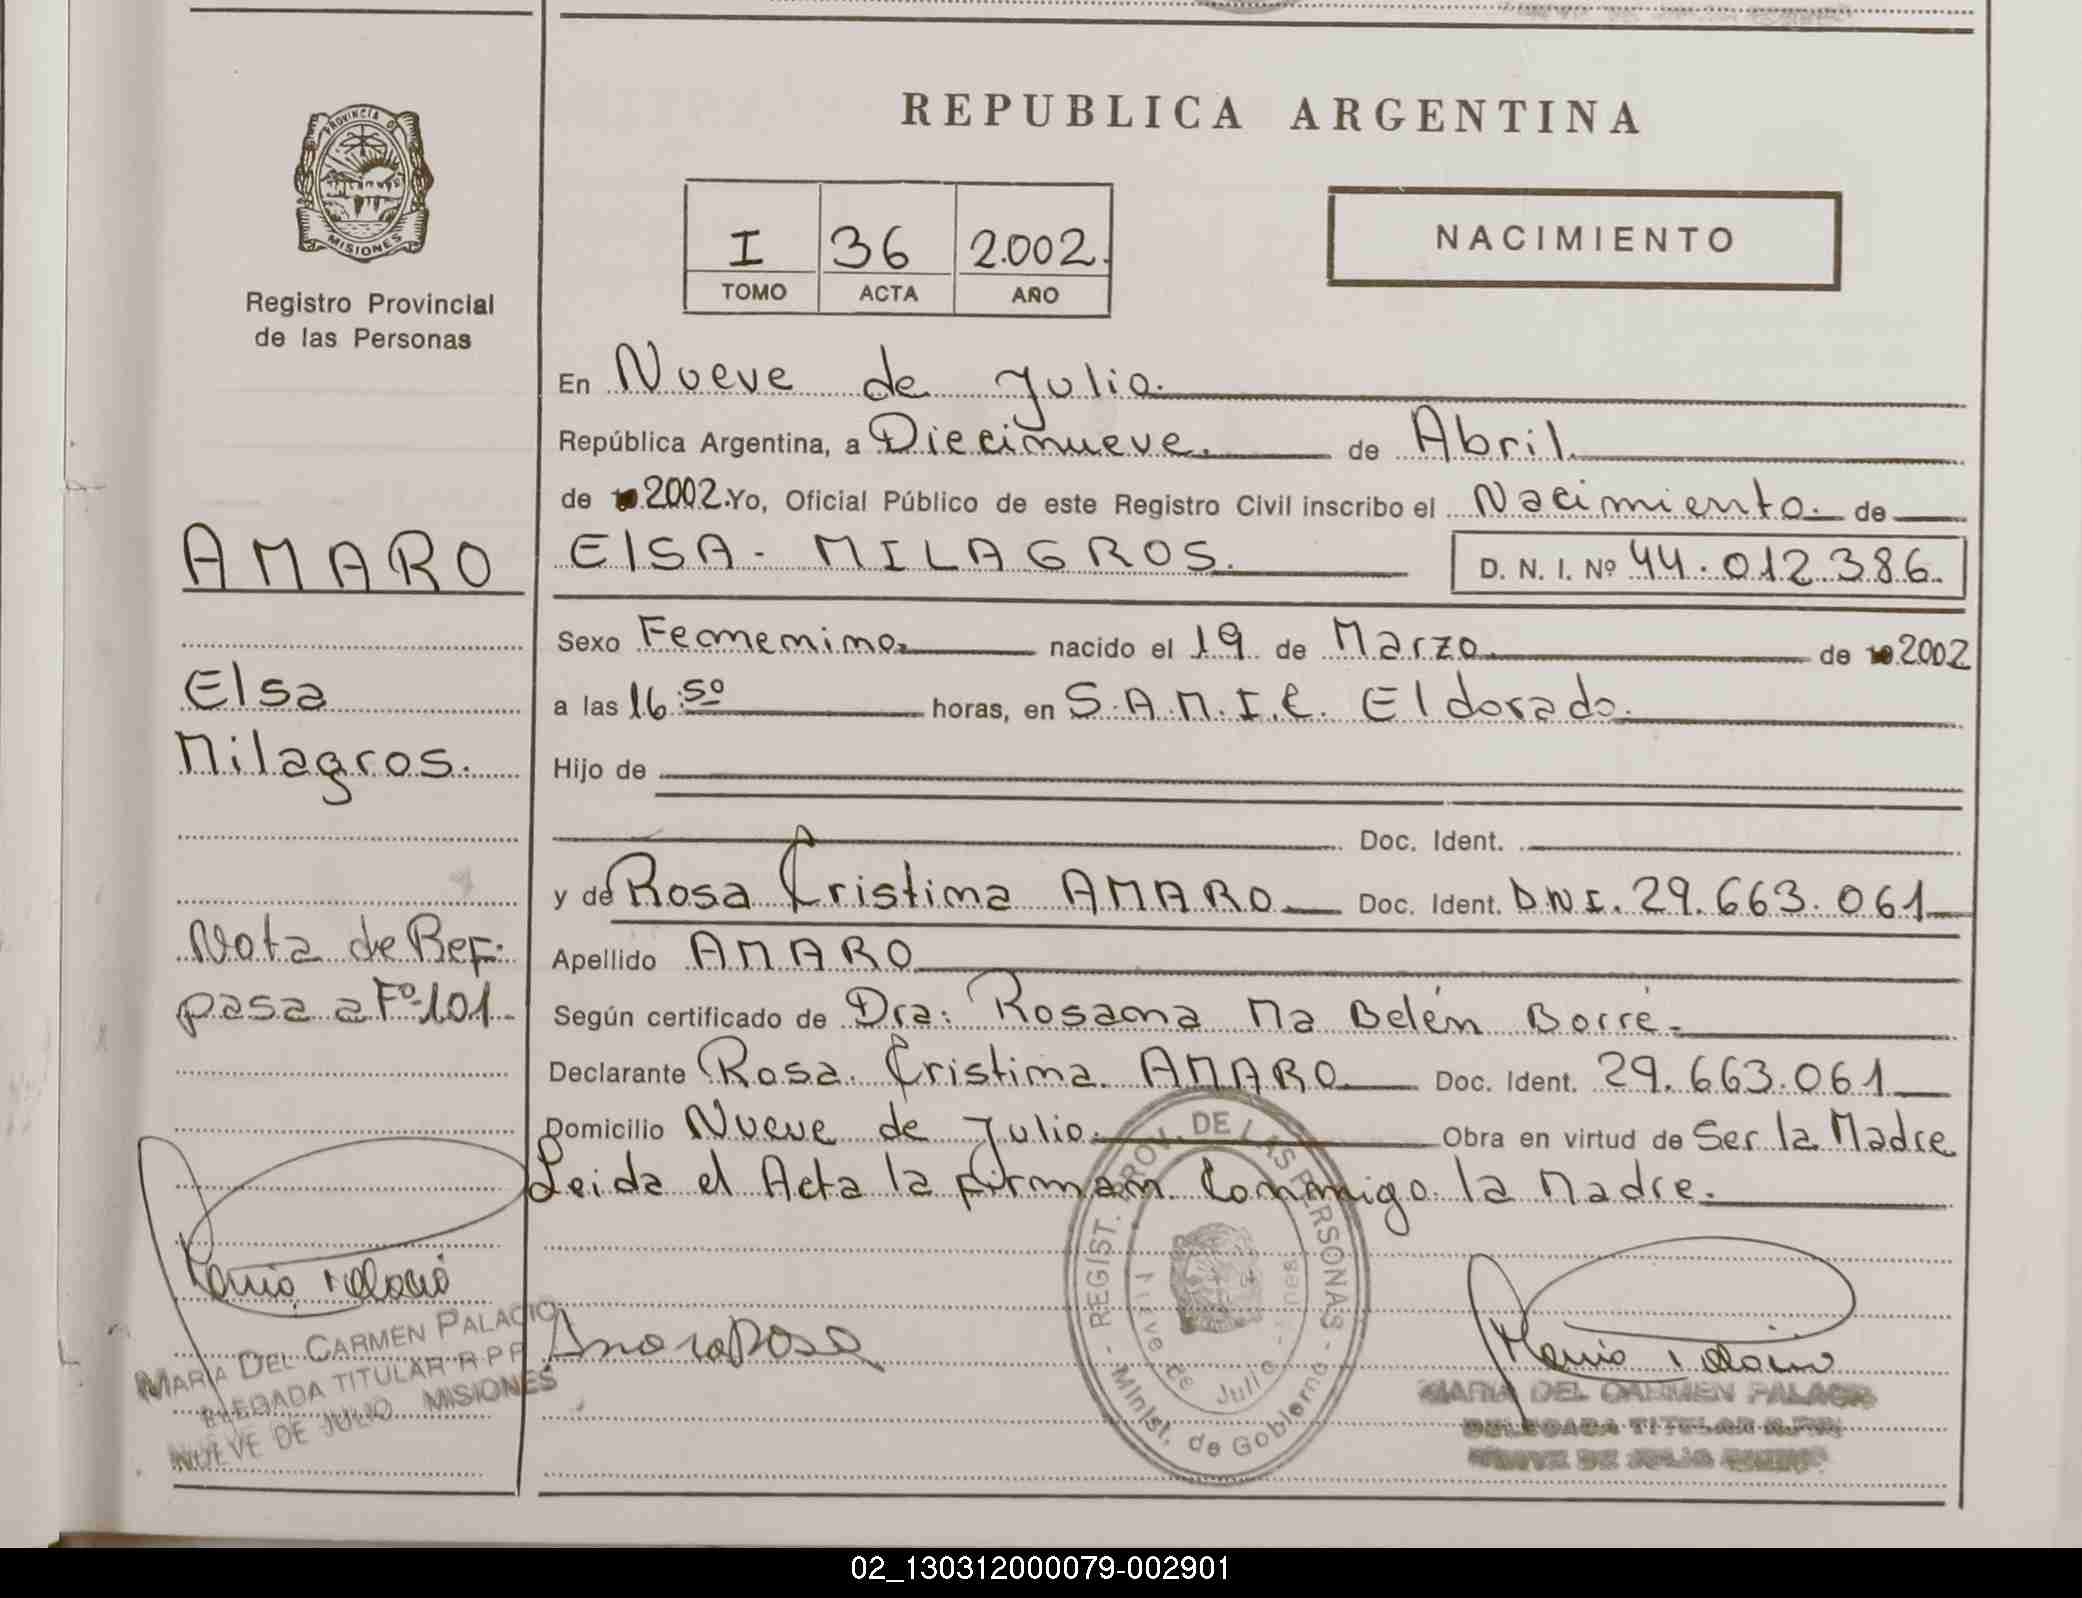 PROVINCIA DE
MISIONES
Registro Provincial
de las Personas
AMARO
Elsa
Milagros.
Nota de Ref:
pasa a Fº 101.
MARIA DEL CARMEN PALACIO
DELEGADA TITULAR R P P
NUEVE DE JULIO MISIONES
REPUBLICA ARGENTINA
I 36 2.002.
TOMO ACTA AÑO
NACIMIENTO
En Nueve de Julio.
República Argentina, a Diecinueve. de Abril.
de 2002. Yo, Oficial Público de este Registro Civil inscribo el Nacimiento. de
ElSA - MILAGROS. D. N. I. Nº 44.012.386.
Sexo Femenino. nacido el 19 de Marzo. de 2002
a las 16:50 horas, en S.A.M.I.C. Eldorado.
Hijo de
Doc. Ident.
y de Rosa Cristina AMARO Doc. Ident. D.N.I. 29.663.061
Apellido AMARO
Según certificado de Dra: Rosana Ma Belén Borré.
Declarante Rosa Cristina AMARO Doc. Ident. 29.663.061
Domicilio Nueve de Julio. Obra en virtud de Ser la Madre
Leida el Acta la firman Conmigo la Madre.
REGIST. PROV. DE LAS PERSONAS
- Minist. de Gobierno -
Nueve de Julio - nes
Amaro Rosa
MARIA DEL CARMEN PALACIO
DELEGADA TITULAR R.P.P.
NUEVE DE JULIO
02_130312000079-002901